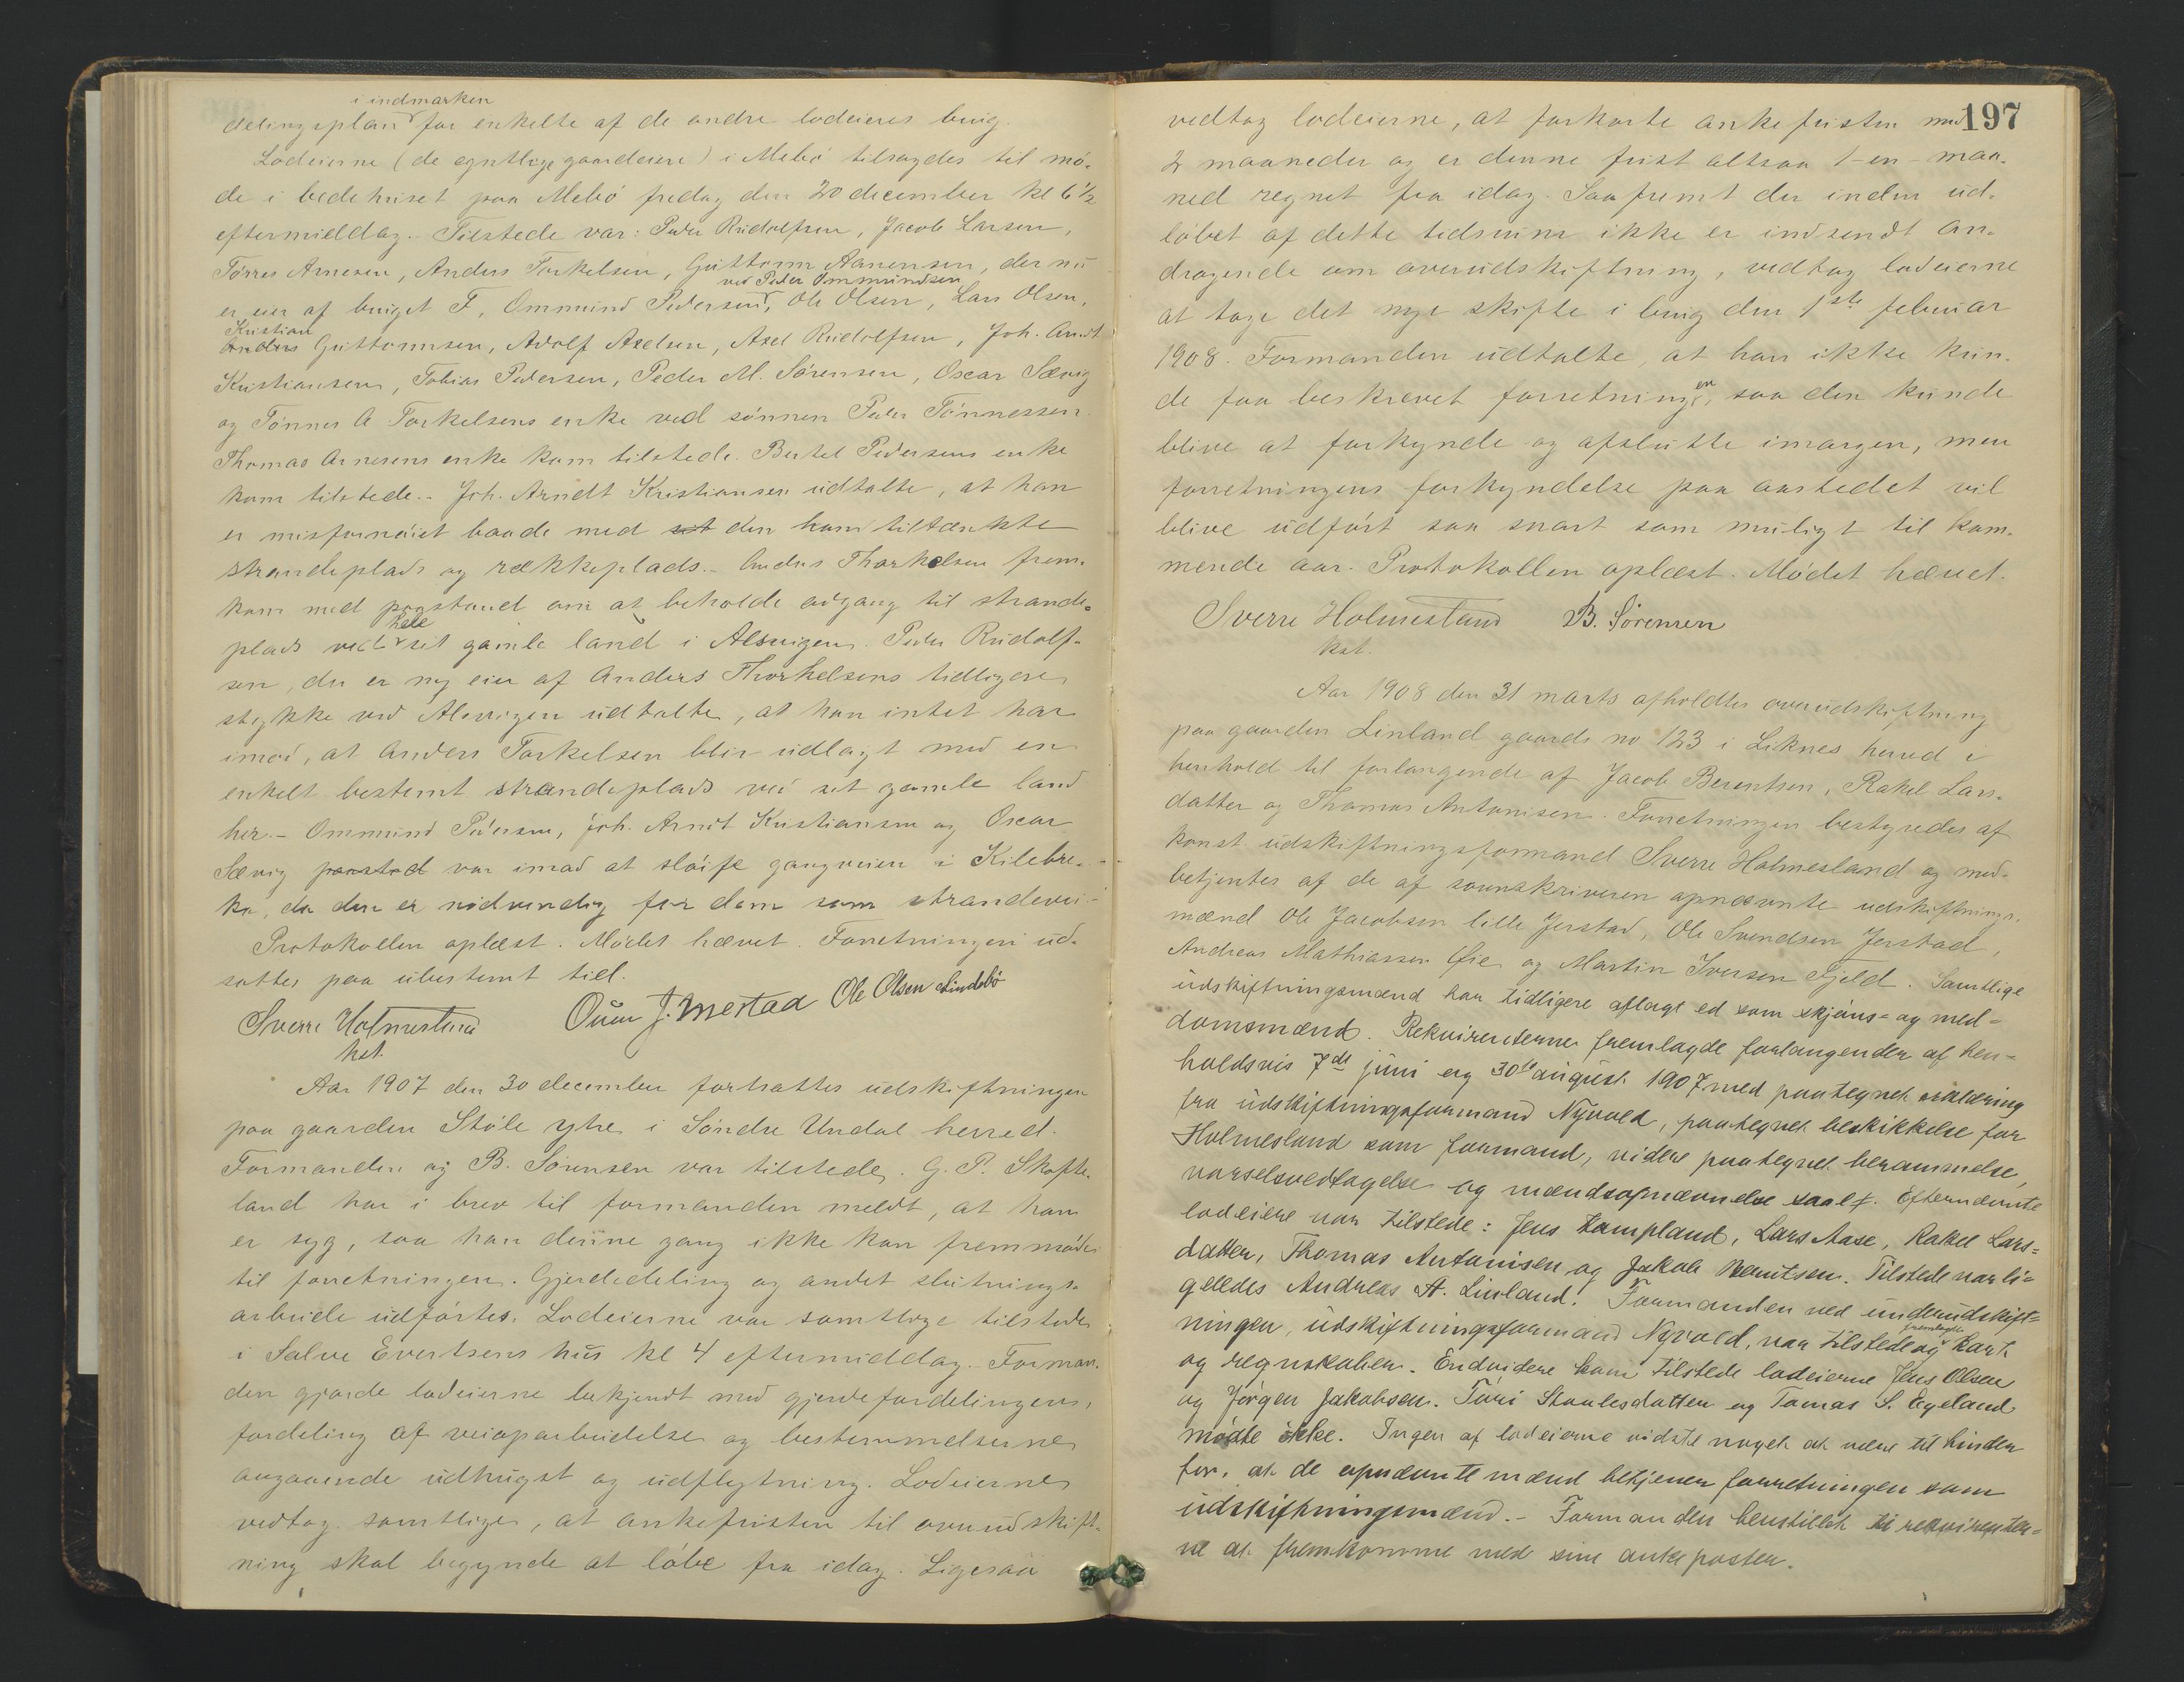 i indmarken
delingsplan for enkelte af de andre lodeieres brug.
Lodeierne (de egntlige gaardeiere) i Mebö tilsagdes til mö-
de i bedehuset paa Mebö fredag den 20 december kl 6½
eftermiddag. Tilstede var: Peder Rudolfsen, Jacob Larsen,
Törres Arnesen, Anders Torkelsen, Guttorm Aanensen, der nu
ved Peder Ommundsen
er eier af bruget F, Ommund Pedersen, Ole Olsen, Lars Olsen,
Kristian
Anders Guttormsen, Adolf Axelsen, Axel Rudolfsen, Joh. Arndt
Kristiansen, Tobias Pedersen, Peder M. Sörensen, Oscar Sævig
og Tönnes A Torkelsens enke ved sönnen Peder Tönnessen.
Thomas Arnesens enke kom tilstede. Bertel Pedersens enke
kom tilstede.- Joh. Arndt Kristiansen udtalte, at han
er misfornöiet baade med sit den ham tiltænkte
strandeplads og rækkeplads.- Anders Thorkelsen frem-
kom med paastand om at beholde adgang til strande-
hele
plads ved sit gamle land i Alsvigen. Peder Rudolf-
sen, der er ny eier af Anders Thorkelsens tidligere
stykke ved Alsvigen udtalte, at han intet har
imod, at Anders Torkelsen blir udlagt med en
enkelt bestemt strandeplads ved sit gamle land
her.- Ommund Pedersen, Joh. Arndt Kristiansen og Oscar
Sævig paastod var imod at slöife gangveien i Kilebre-
ka, da den er nödvendig for dem som strandevei-
Protokollen oplæst. Mödet hævet. Forretningen ud-
sattes paa ubestemt tid.
Sverre Holmesland J. Mestad Ole Olsen Lindebö
kst.
Aar 1907 den 30 december fortsattes udskiftningen
paa gaarden Stöle ytre i Söndre Undal herred.
Formanden og B. Sörensen var tilstede. G. P. Skofte-
land har i brev til formanden meldt, at han
er syg, saa han denne gang ikke kan fremmöde
til forretningen. Gjerdedeling og andet slutnings-
arbeide udförtes. Lodeierne var samtlige tilstede
i Salve Evertsens hus kl 4 eftermiddag. Forman-
den gjorde lodeierne bekjendt med gjerdefordelingen,
fordeling af veioparbeidelse og bestemmelserne
angaaende udhugst og udflytning. Lodeierne
vedtog samtlige, at ankefristen til overudskift-
ning skal begynde at löbe fra idag. Ligesaa
197
vedtog lodeierne, at forkorte ankefristen med
2 maaneder og er denne frist altsaa 1-en-maa-
ned regnet fra idag. Saafremt der inden ud-
löbet af dette tidsrum ikke er indsendt an-
dragende om overudskiftning, vedtog lodeierne
at tage det nye skifte i brug den 1ste februar
1908. Formanden udtalte, at han ikke kun-
de faa beskrevet forretningen, saa den kunde
blive at forkynde og afslutte imorgen, men
forretningens forkyndelse paa aastedet vil
blive udfört saa snart som muligt til kom-
mende aar. Protokollen oplæst. Mödet hævet.
Sverre Holmesland B. Sörensen
kst.
Aar 1908 den 31 marts afholdtes overudskiftning
paa gaarden Linland gaards no 123 i Liknes herred i
henhold til forlangende af Jacob Berentsen, Rakel Lars-
datter og Thomas Antonisen. Forretningen bestyredes af
konst. udskiftningsformand Sverre Holmesland og med-
betjentes af de af sorenskriveren opnævnte udskiftnings-
mænd Ole Jacobsen lille Jerstad, Ole Svendsen Jerstad,
Andreas Mathiassen Öie og Martin Iversen Fjeld. Samtlige
udskiftningsmænd har tidligere aflagt ed som skjöns- og med-
domsmænd. Rekvirenterne fremlagde forlangender af hen-
holdsvis 7de juni og 30te august 1907 med paategnet erklæring
fra udskiftningsformand Nyvold, paategnet beskikkelse for
Holmesland som formand, videre paategnet berammelse,
varselsvedtagelse og mændsopnævnelse saalf. Efternævnte
lodeiere var tilstede: Jens Kampland, Lars Aase, Rakel Lars-
datter, Thomas Antonisen og Jakob Berentsen. Tilstede var li-
geledes Andreas A. Linland. Formanden ved underudskift-
ningen, udskiftningsformand Nyvold, var tilstede og
fremlagde
kart
og regnskaber. Endvidere kom tilstede lodeierne Jens Olsen
og Jörgen Jakobsen. Turi Staalesdatter og Tomas S. Egeland
mödte ikke. Ingen af lodeierne vidste noget at være til hinder
for, at de opnævnte mænd betjener forretningen som
udskiftningsmænd.- Formanden henstillet til rekvirenter-
ne at fremkomme med sine ankeposter.